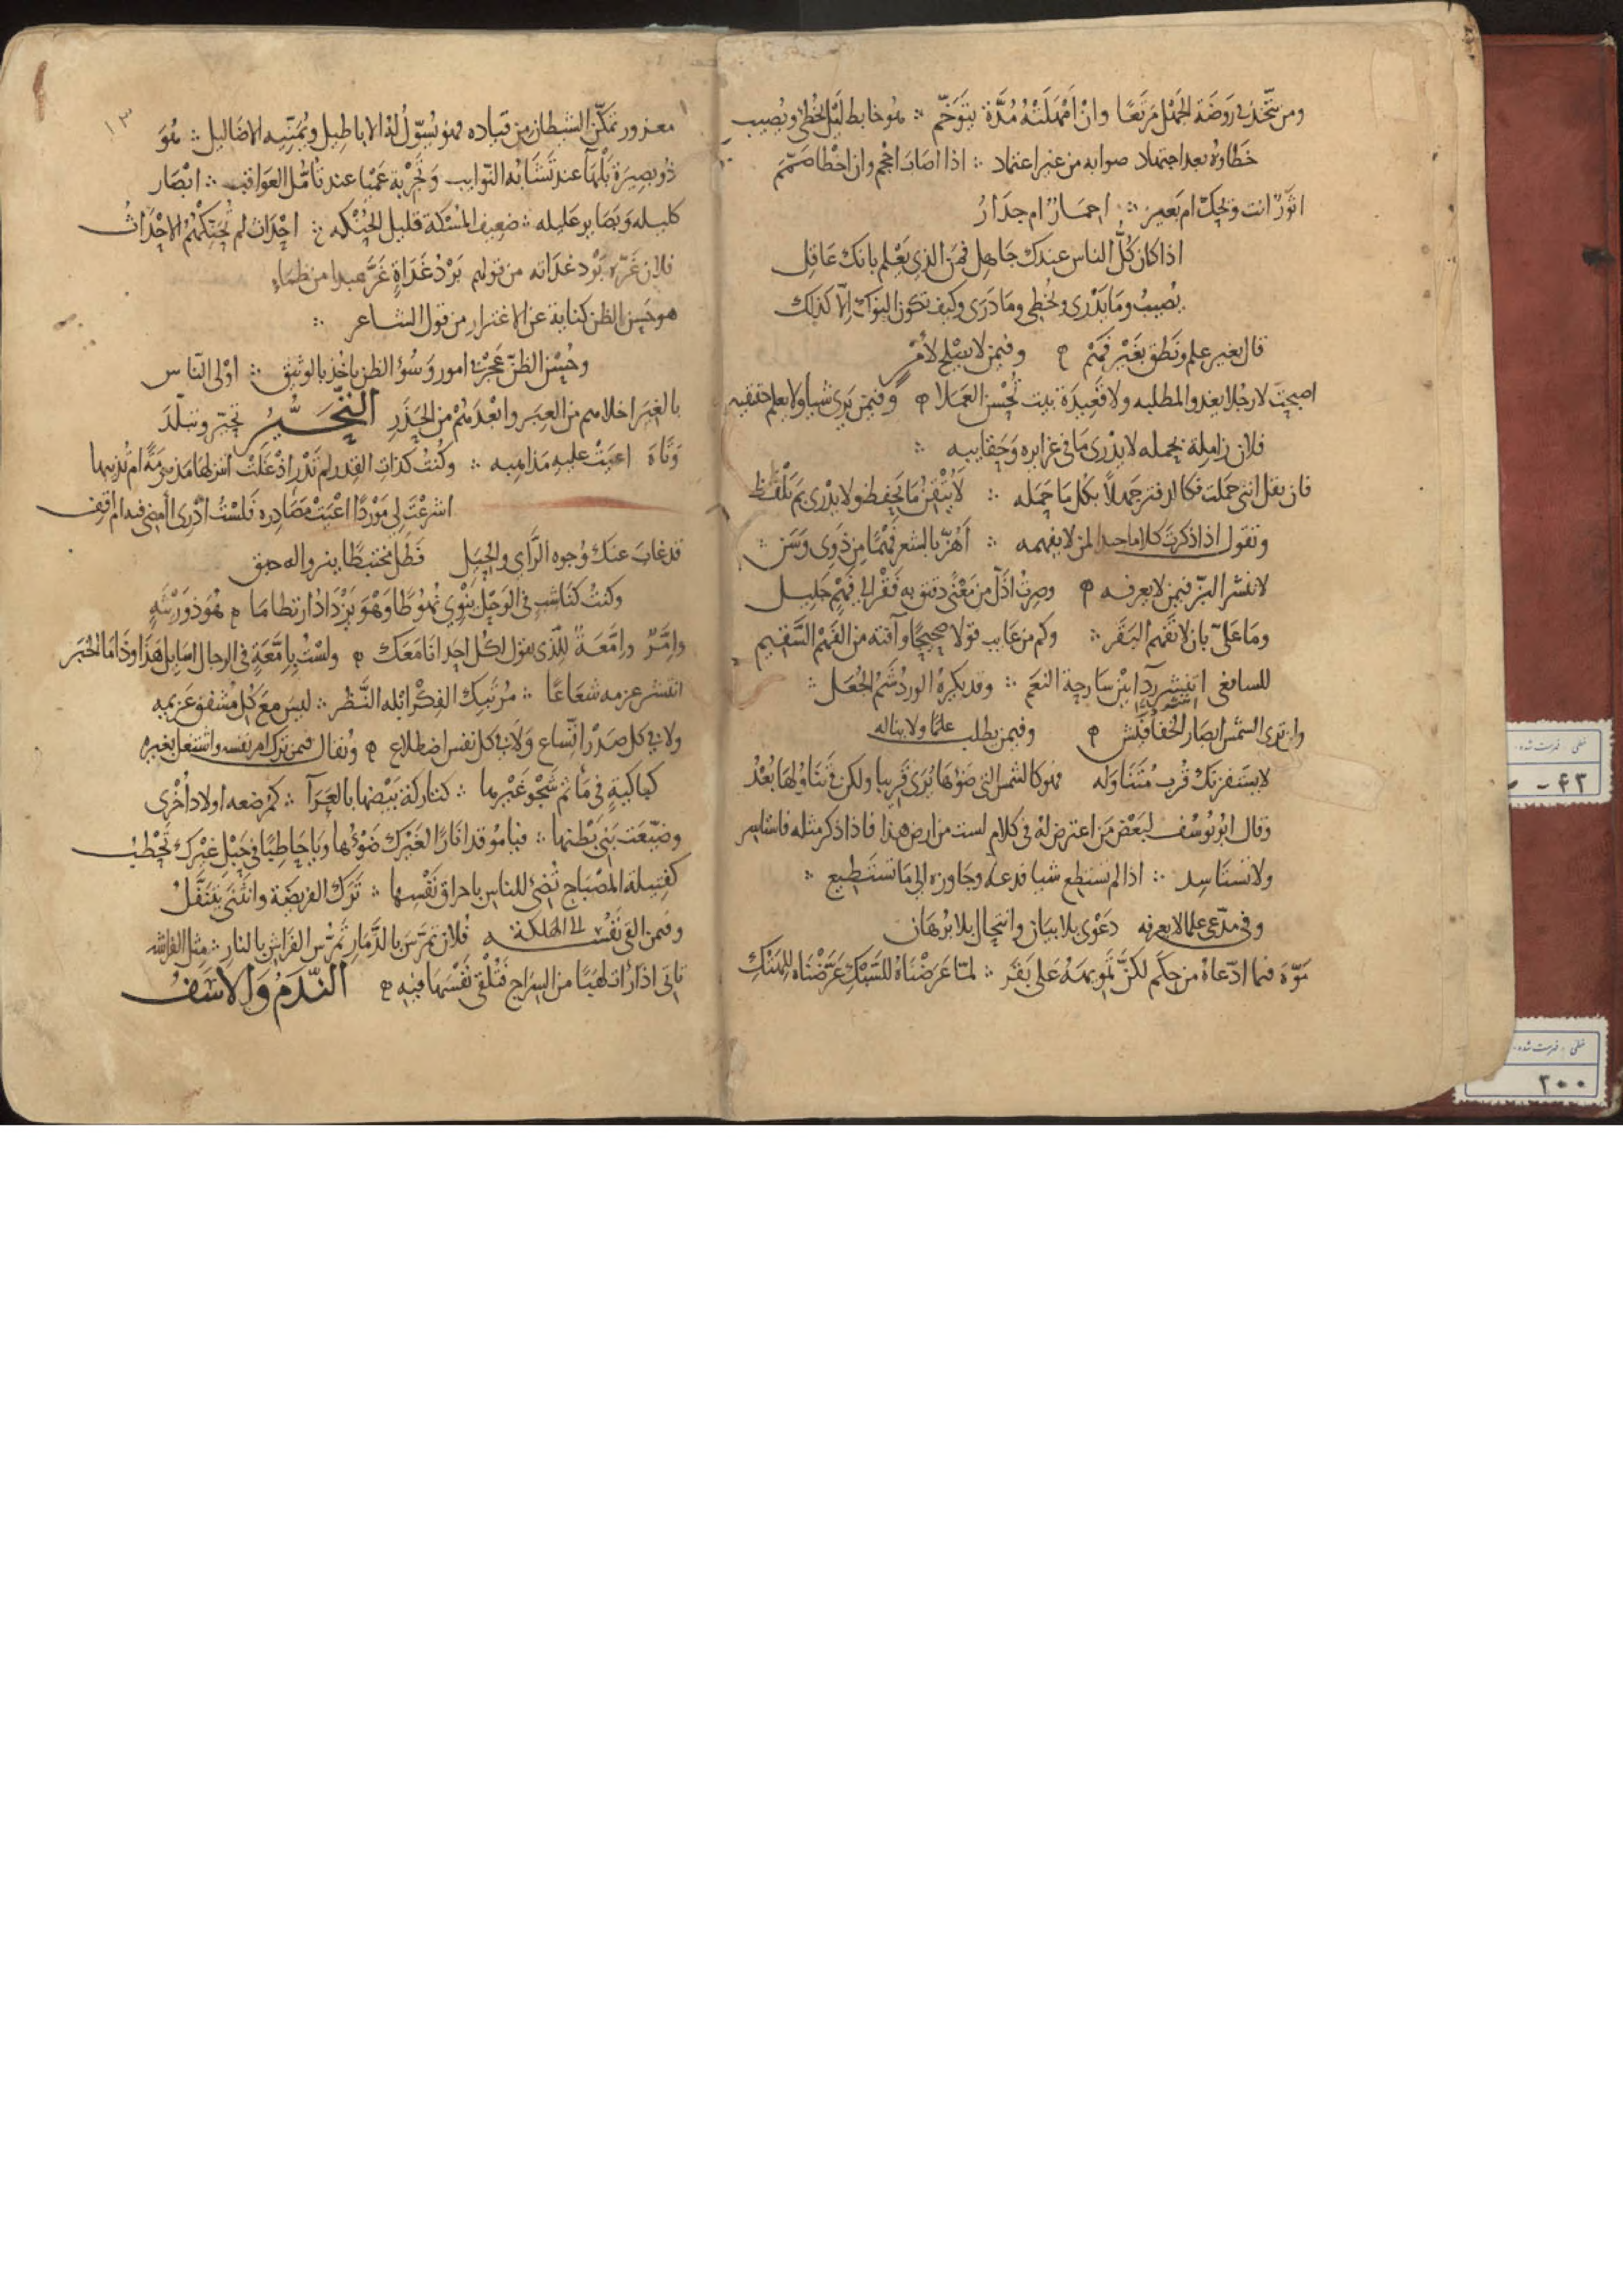 ومن يتخذ في روضة الجهل مرتعا وان امهلته مدة يتوخم ∴ هو خابط ليل يخطئ ويصيب
خطاؤه بعد اجتهاد صوابه من غير اعتماد ∴ اذا اصاب احجم وان اخطا صمم
اثور انت ويحك ام بعير ∴ احمار ام جدار
اذا كان كل الناس عندك جاهل فمن الذي يعلم بانك عاقل
يصيب وما يدري ويخطي وما درى وكيف تكون النوك الا كذلك
قال بغير علم ونطق بغير فهم وفيمن لا يصلح لامر
اصبحت لا رجلا يغدو لمطلبه ولا قعيدة بيت تحسن العملا وفيمن يرى شيا ولا يعلم حقيقته
فلان زاملة يحمله لا يدري ما في غرايره وحقايبه ∴
فان يقل اننى حملت فكالدفتر جهلا بكل ما حمله ∴ لا يتقن ما يحفظ ولا يدري بم تلفظ
وتقول اذا ذكرت كلاما جيدا لمن لا يفهمه ∴ اهز بالشعر فهما من ذوى وسن ∴
لا تنشر البز فيمن لا يعرفه وصرت اذل من معنى دقيق به فقر الى فهم جليل
وما على بان لا تفهم البقر ∴ وكم من عايب قولا صحيحا وآفته من الفهم السقيم
للسافعي اانثر درا بين سارحة النعم ∴ وقد يكره الورد شم الجعل ∴
وان تدرى الشمس ابصار الخفافيش وفيمن يطلب علما ولا يناله
لا يستفزنك قرب متناوله فهو كالشمس التي ضوءها يرى قريبا ولكن في تناولها بعد
وقال ابو يوسف لبعض من اعترض له في كلام لست من ارض هذا فاذا ذكر مثله فاستاسر
ولا تستاسد ∴ اذا لم تستطع شيا فدعه وجاوزه الى ما تستطيع ∴
وفي مدعى علما لا يعرفه دعوى بلا بيان وانتحال بلا برهان
موه فيما ادعاه من حكم لكن تمويهه على بقر ∴ لما عرضناه للسبك عرضناه للهتك
١٣
مغرور تمكن الشيطان من قياده فهو يسول له الاباطيل ويمنيه الاضاليل ∴ هو
ذو بصيرة بلهآ عند تشابه النوايب وتجربة عميا عند تامل العواقب ∴ ابصار
كليله وبصاير عليله ∴ ضعيف المسكة قليل الحنكه ∴ احداث لم تحنكهم الاحداث
فلان غره برد غداته من قولهم برد غداة غر عبدا من ظماء
هو حسن الظن كناية عن الاغترار من قول الشاعر ∴
وحسن الظن عجز في امور وسوء الظن ياخذ بالوثيق ∴ اولى الناس
بالغير اخلاهم من العبر وابعدهم من الحذر التحير تحير وتبلد
وتاه اعيت عليه مذاهبه ∴ وكنت كذات القدر لم تدر اذ غلت اتنزلها مذمومة ام تذيبها
اشرعت لي موردا اعيت مصادره فلست ادري أأمضى فيه ام اقف
قد غاب عنك وجوه الراي والحيل فظل مختبطا ينزو اله حبق
وكنت كناشب في الوحل ينوي نهوطا وهو يزداد ارتطاما هو ذو رثية
وامر وامعة للذي يقول لكل احد انا معك ولست بامعة في الرجال اسايل هذا وذا ما الخبر
انتشر عزمه شعاعا ∴ مرتبك الفكر ابله النظر ∴ ليس مع كل مشفق عزيمه
ولا في كل صدر اتساع ولا في كل نفس اضطلاع وتقال فيمن ترك امر نفسه واشتغل بغيره
كباكية في ماتم شجو غيرها ∴ كتاركة بيضها بالعرآ ∴ كمرضعه اولاد اخرى
وضيعت بني بطنها ∴ فيا موقدا نارا لغيرك ضوءها ويا حاطبا في حبل غيرك تحطب
كفتيلة المصباح تضئ للناس باحراق نفسها ∴ ترك الفريضة وانثنى يتنفل
وفيمن القى نفسه الى الهلكة فلان تمرس بالدمار تمرس الفراش بالنار ∴ مثل الفراشه
تاتى اذا رات لهيبا من السراج فتلقي نفسها فيه الندم والاسف
خطى ، فهرست شده
خطى ، فهرست شده
٢٠٠